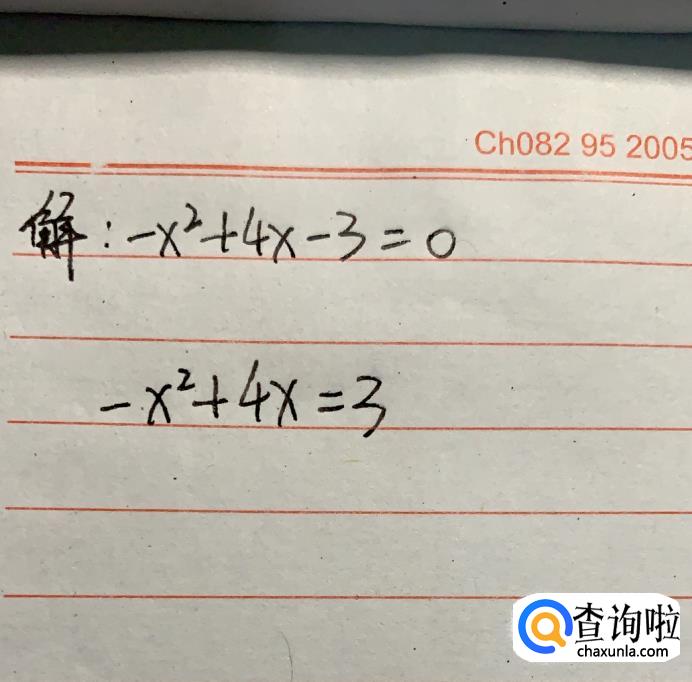 Ch082 95 2005
解：-x²+4x-3=0
-x²+4x=3
查询啦
chaxunla.com